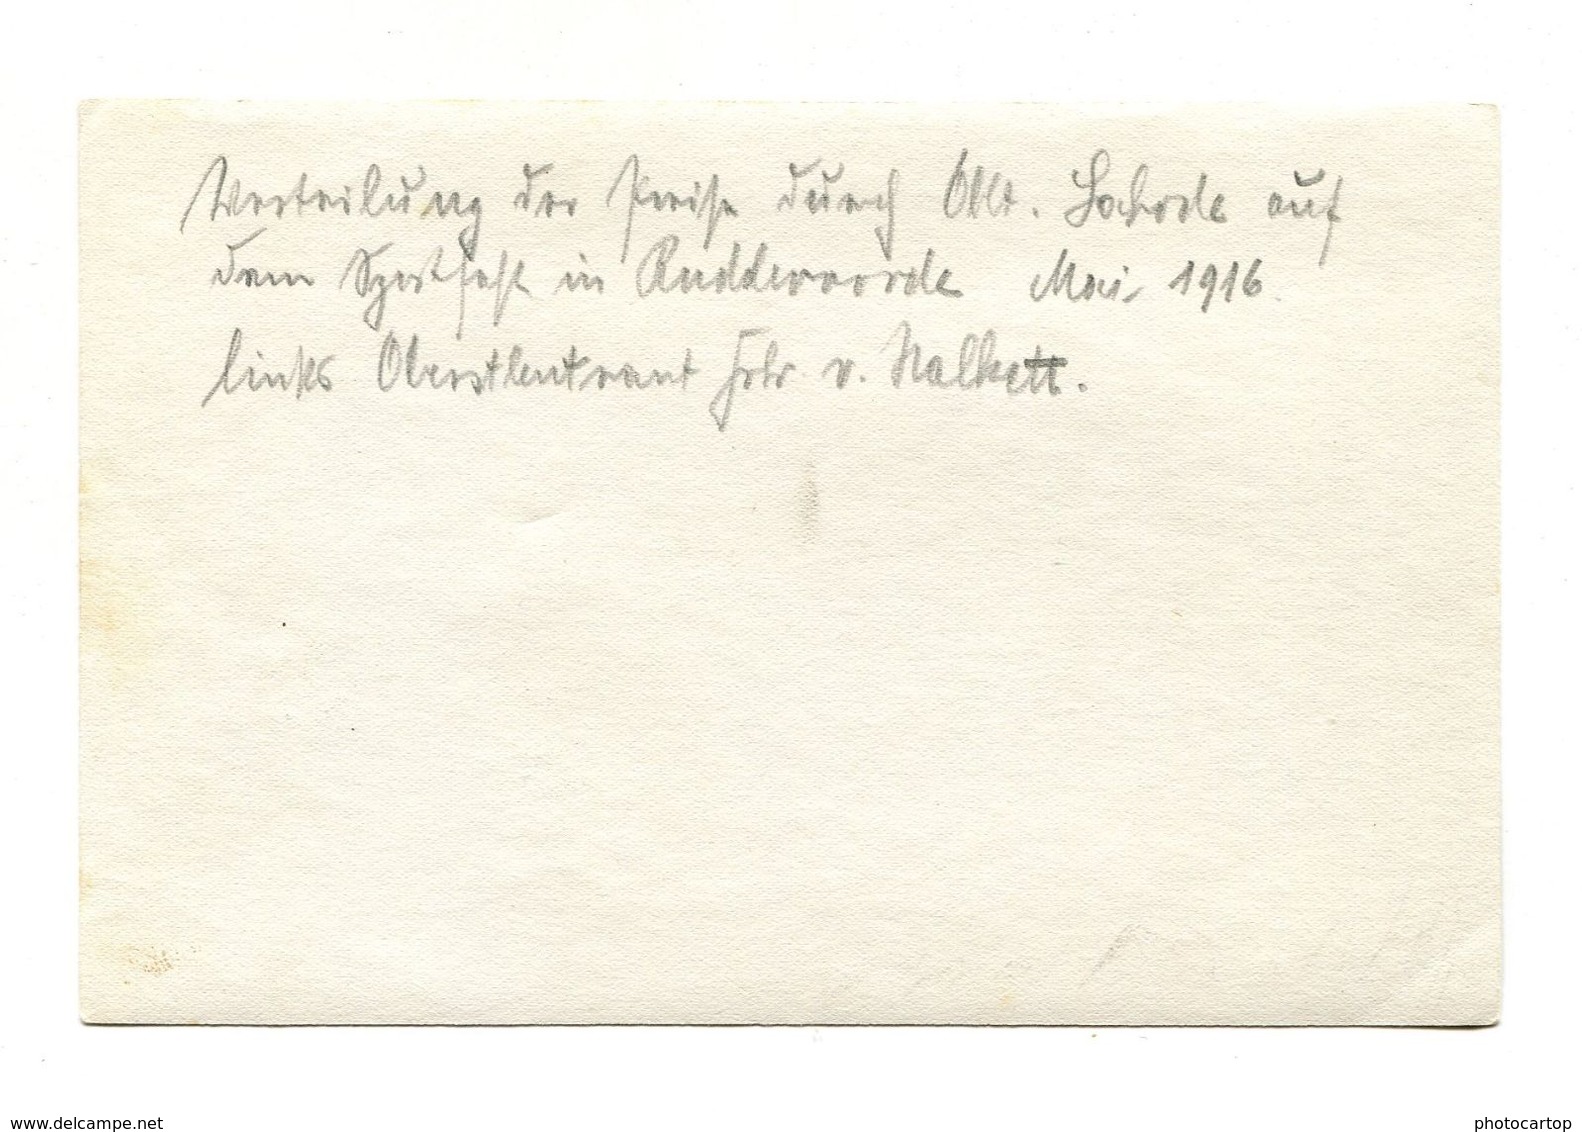 Verteilung der Preise durch Oblt. auf
dem Sportfest in Ruddervoorde Mai 1916.
links Oberstleutnant Frhr. v. Halkett.
www.delcampe.net
photocartop